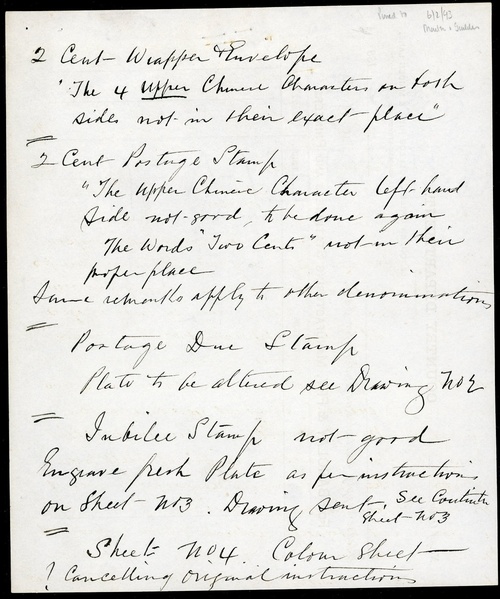 6/2/93
2 Cent Wrapper & Envelope
"The 4 Upper Chinese Characters on both
sides not in their exact place"
2 Cent Postage Stamp
"The Upper Chinese Character left hand
side not good, to be done again
The Words "Two Cents" not in their
proper place
Same remarks apply to other denominations
Postage Due Stamp
Plate to be altered see Drawing No 2
Jubilee Stamp not good
Engrave fresh Plate as per instructions
on Sheet No 3. Drawing sent. See
Sheet No 3
Sheet No 4. Colour Sheet
? Cancelling original instructions